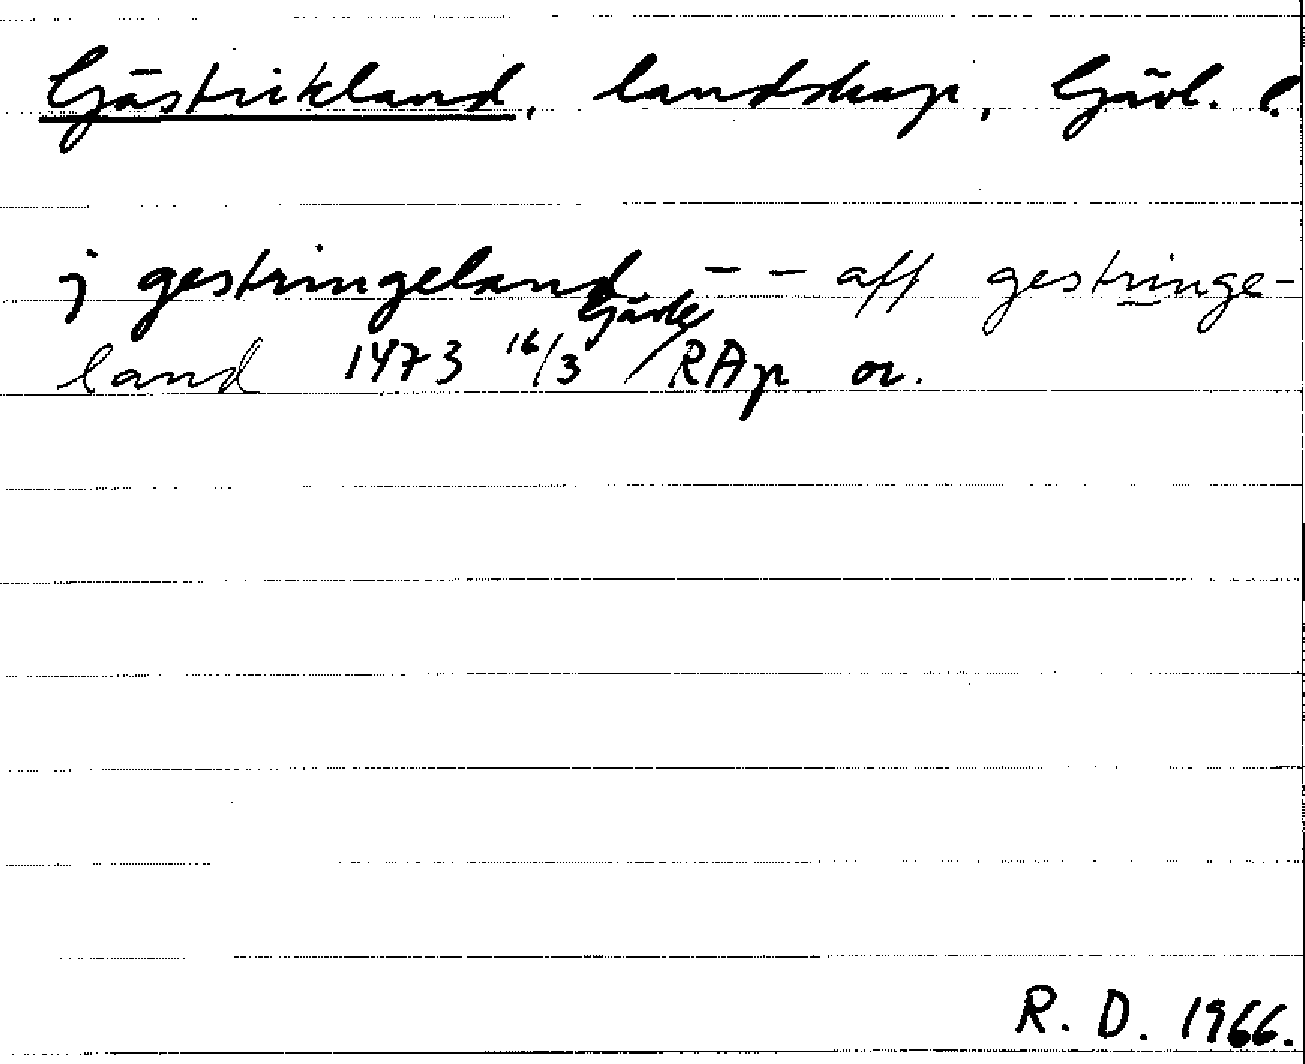 Gästrikland, landskap, Gävl. l.
j gestringeland -- aff gestringe-
land 1473 16/3 Gävle RAp or.
R. D. 1966.